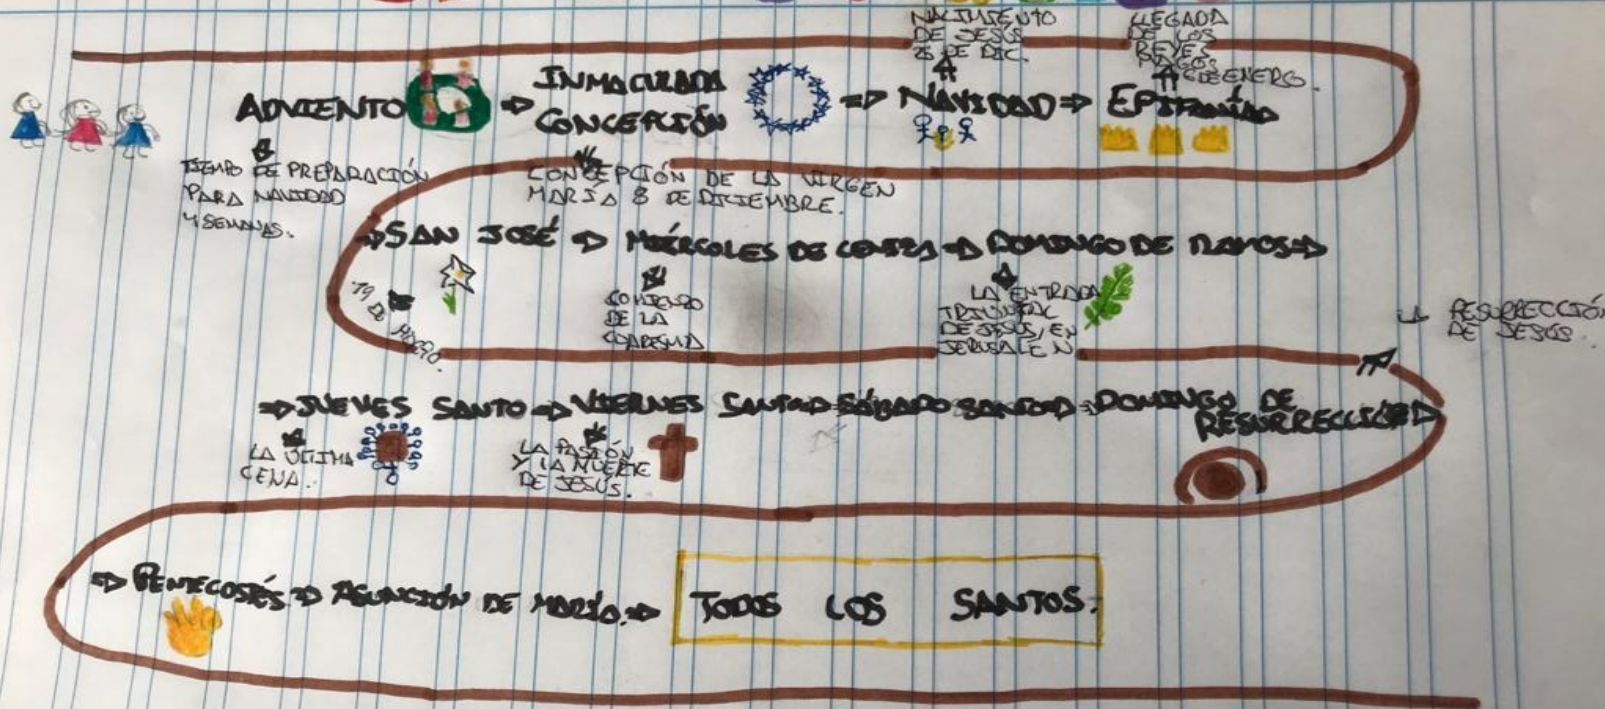 NACIMIENTO
DE JESÚS
25 DE DIC.
LLEGADA
DE LOS
REYES
MAGOS
6 DE ENERO.
ADVIENTO ⇒ INMACULADA
CONCEPCIÓN ⇒ NAVIDAD ⇒ EPIFANÍA
TIEMPO DE PREPARACIÓN
PARA NAVIDAD
4 SEMANAS.
CONCEPCIÓN DE LA VIRGEN
MARÍA 8 DE DICIEMBRE.
⇒ SAN JOSÉ ⇒ MIÉRCOLES DE CENIZA ⇒ DOMINGO DE RAMOS ⇒
19 DE MARZO.
COMIENZO
DE LA
CUARESMA
LA ENTRADA
TRIUNFAL
DE JESÚS, EN
JERUSALEN
LA RESURRECCIÓN
DE JESÚS.
⇒ JUEVES SANTO ⇒ VIERNES SANTO ⇒ SÁBADO SANTO ⇒ DOMINGO DE
RESURRECCIÓN ⇒
LA ÚLTIMA
CENA.
LA PASIÓN
Y LA MUERTE
DE JESÚS.
⇒ PENTECOSTÉS ⇒ ASUNCIÓN DE MARÍA. ⇒ TODOS LOS SANTOS.